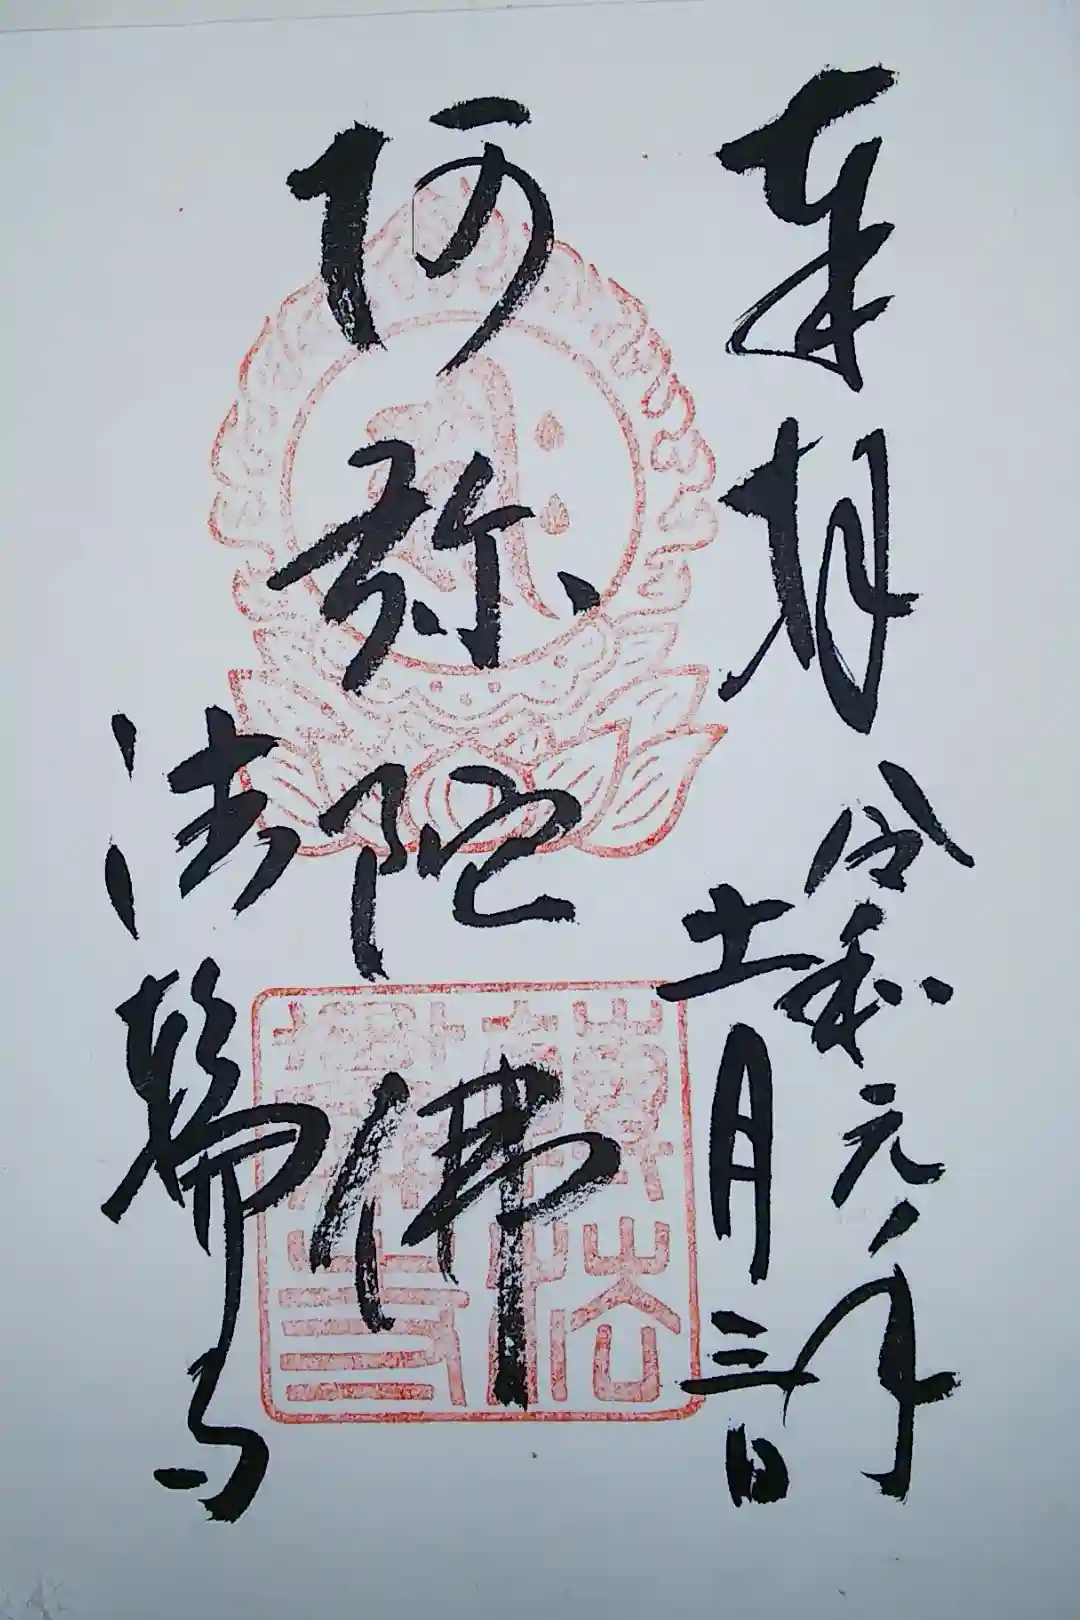 奉拝
令和元年
十一月三日
阿弥陀佛
法輪寺